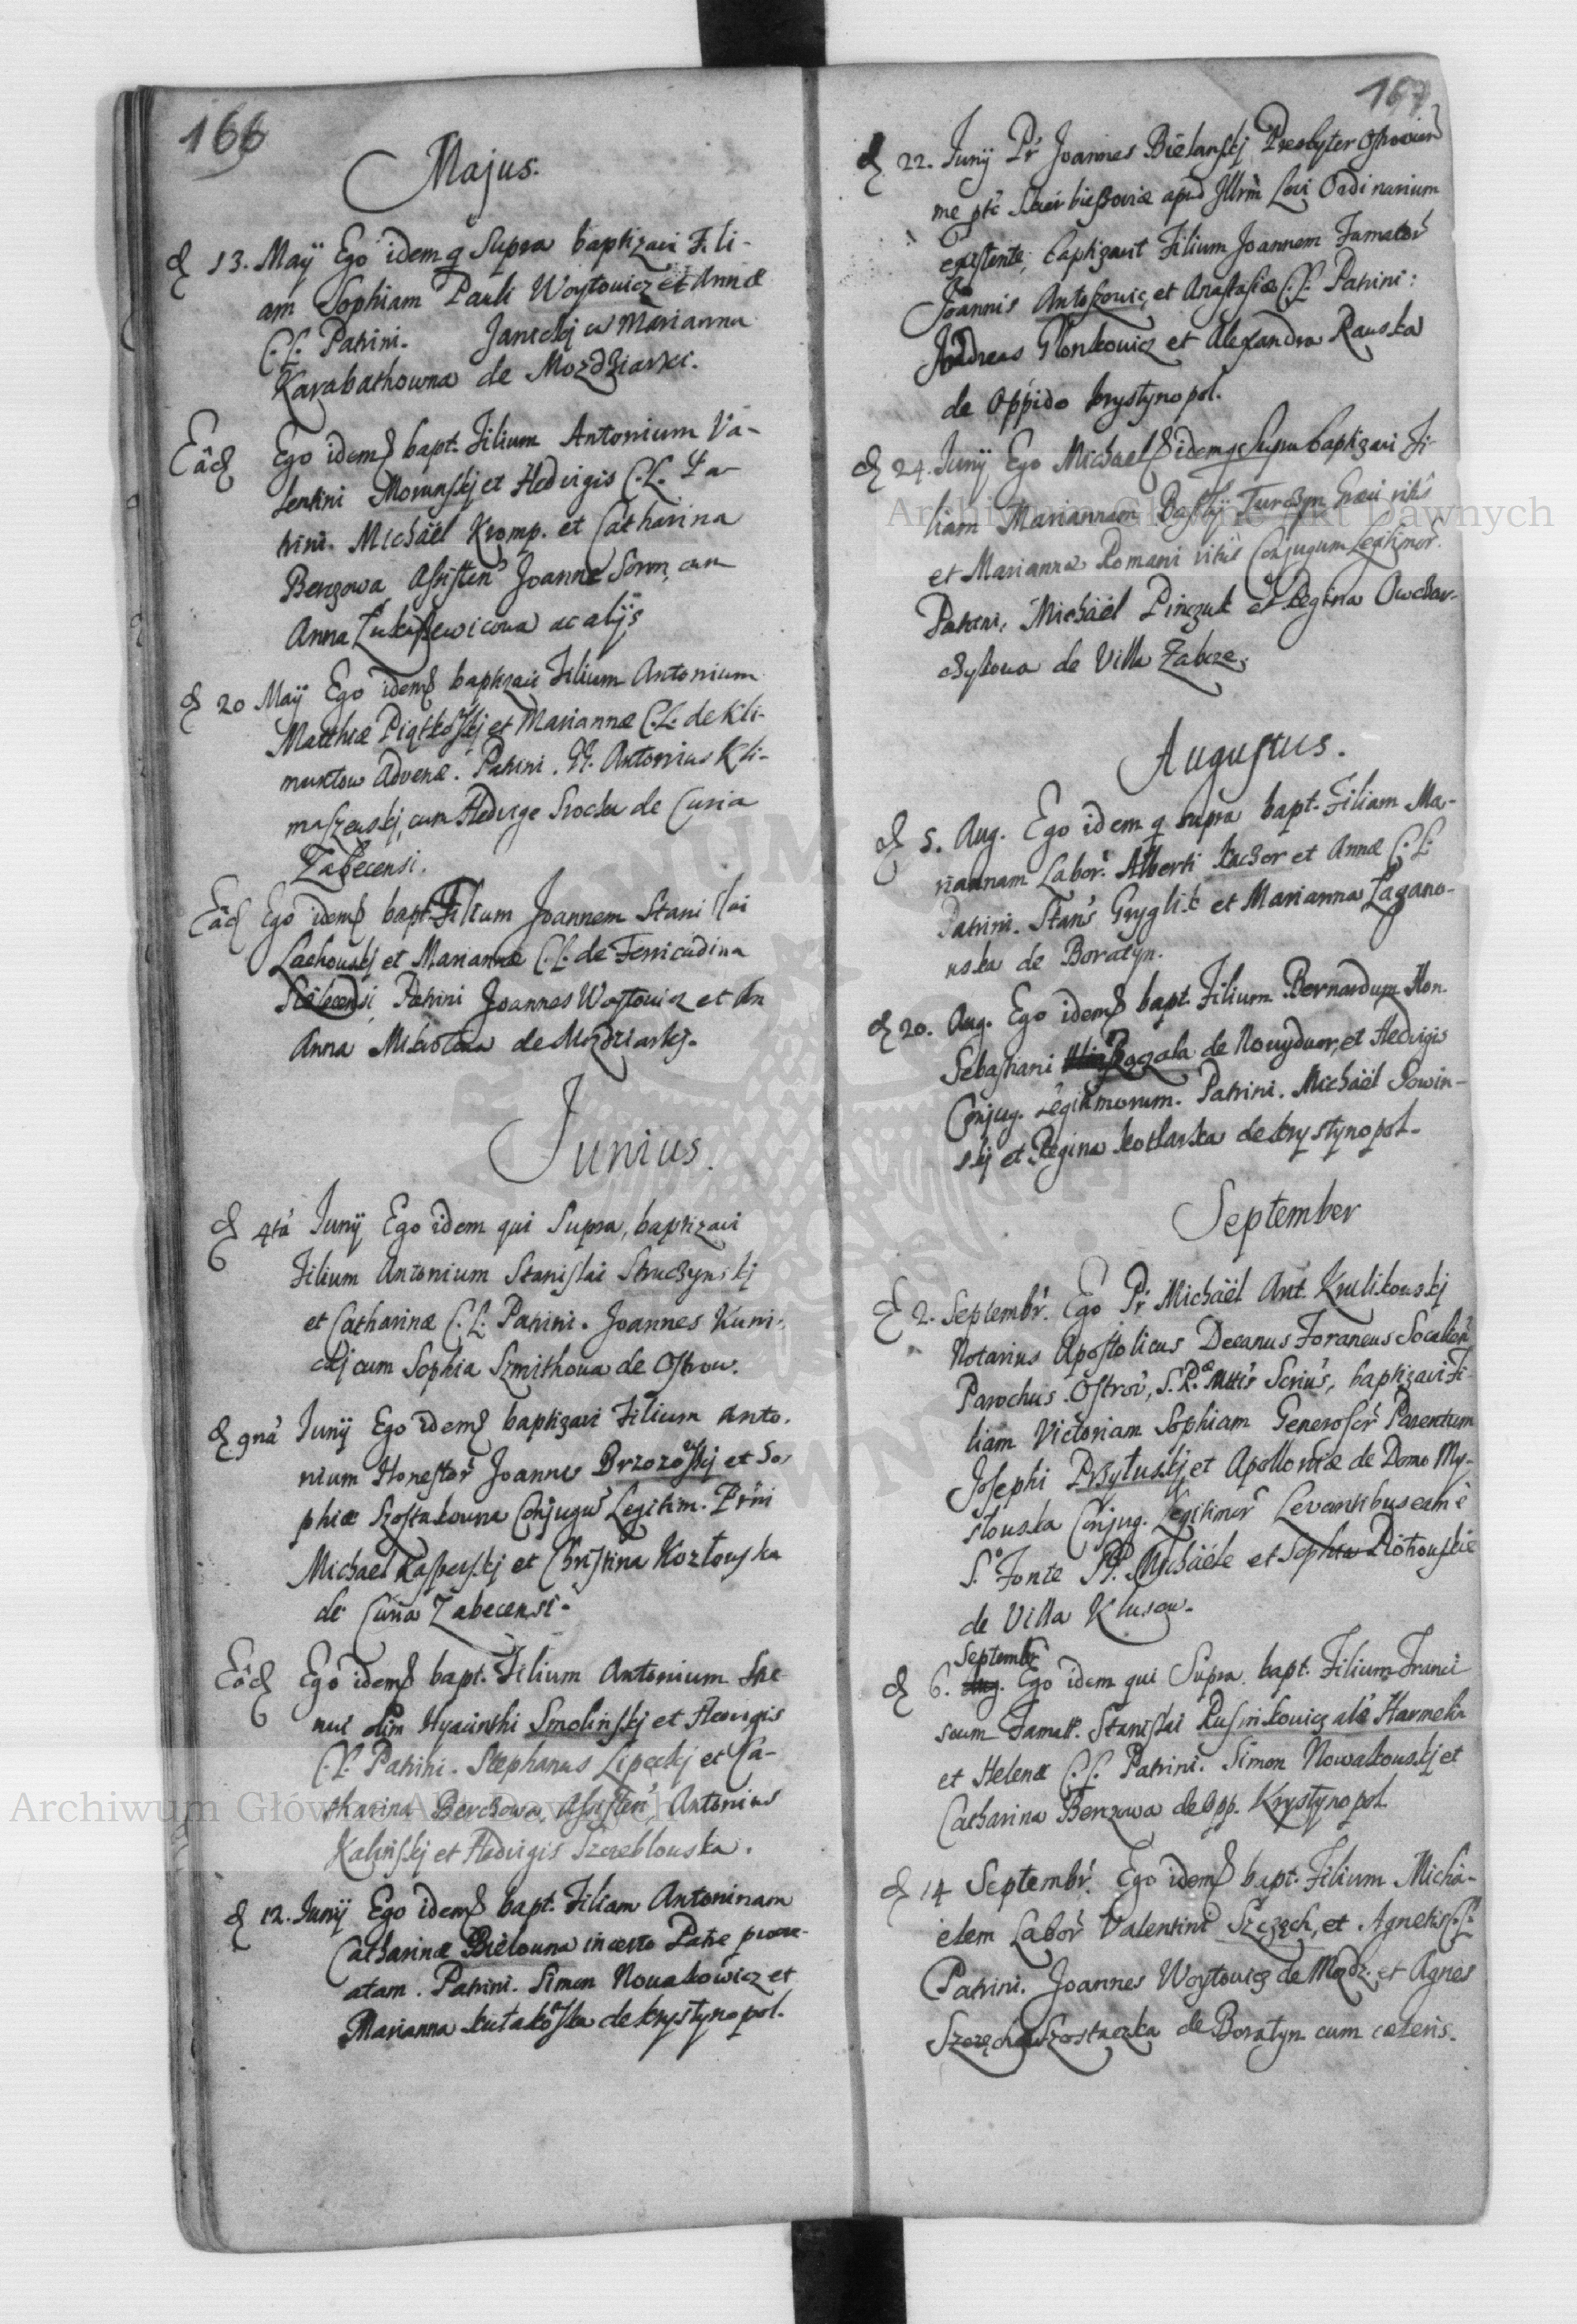 166
Majus.
d 13. Maÿ Ego idem q Supra baptizavi Fili-
am Sophiam Pauli Woytowicz et Annæ
C. L. Patrini. Janickj cu Marianna
Karabathowna de Mozdziarki.
Eâd Ego idem bapt. Filium Antonium Va-
lentini Morawskj et Hedvigis C. L. Pa-
trini. Michäel Kromp. et Catharina
Benzowa, Assisten Joanne cum
Anna Łukaszewicowa ac alÿs
d 20 Maÿ Ego idem baptizavi Filium Antonium
Matthiæ Piątkoskj et Mariannæ C. L. de Kli-
muntow Advenæ. Patrini. Antonius Kli-
maszewskj, cum Hedvige Srocka de Curia
Zabecensi.
Eâd Ego idem bapt. Filium Joannem Stanislai
Lachowskj et Mariannæ C. L. de Ferricudina
Patrini Joannes Woytowicz et An
Anna de Mozdziarkj.
Junius.
d 4tâ Junÿ Ego idem qui Supra, baptizavi
Filium Antonium Stanislai Struczynskj
et Catharinæ C. L. Patrini. Joannes Kuni-
ckj cum Sophia Szmithowa de Ostrow.
d 9nâ Junÿ Ego idem baptizavi Filium Anto-
nium Honestor Joannis Brzozoskj et So-
phiæ Szostakowna Conjugu Legitim. Prni
Michael Kasperskj et Christina Kozłowska
de Curia Zabecensi.
Eôd Ego idem bapt. Filium Antonium Stre-
nui olim Hyacinthi Smolinskj et Hedvigis
C. L. Patrini. Stephanus Lipeckj et Ca-
tharina Berchowa, Assisten, Antonius
Kalinskj et Hedvigis Szczeblowska.
d 12. Junÿ Ego idem bapt. Filiam Antoninam
Catharinæ Bielowna incerto Patre procre-
atam. Patrini. Simon Nowakowicz et
Marianna Kułakoska de Krystynopol.
167
d 22. Junÿ Pr Joannes Bielanskj Presbyter
me ptc apud Illrm Loci Ordinarium
existente, baptizavit Filium Joannem Famator
Joannis Antoszowic, et Anastasiæ C. L. Patrini:
Andreas Glonkowicz et Alexandra Rauska
de Oppido Krystynopol.
d 24. Junÿ Ego Michael idem q Supra baptizavi Fi-
liam Mariannam Basilÿ Turczyn Græci ritûs
et Marianna Romani ritûs Conjugum Legitimor.
Patrini, Michäel Pinczuk et Regina Owczar-
czykowa de Villa Zabcze.
Augustus.
d 5. Aug. Ego idem q supra bapt. Filiam Ma-
riannam Labor. Alberti Kaczor et Annæ C. L.
Patrini. Stans Gryglik et Marianna Lagano-
wska de Boratyn.
d 20. Aug. Ego idem bapt. Filium Bernardum Hon.
Sebastiani de Nowydwor, et Hedvigis
Conjug. Legitimorum. Patrini. Michäel Sowin-
skj et Regina Kotlarka de Krystynopol.
September
d 2. Septembr. Ego Pr Michäel Ant. Krulikowskj
Notarius Apostolicus Decanus Foraneus Socalien
Parochus Ostrov, S. R. Mttis Scrius, baptizavi Fi-
liam Victoriam Sophiam Generosor Parentum
Josephi Przyłuskj et Apolloniæ de Domo My-
słowska Conjug. Legitimor Levantibus eam è
S. Fonte PP. Michäele et Sophia Piotrowskie
de Villa Klusow.
Septembr
d 6. Aug. Ego idem qui Supra bapt. Filium Franci
scum Famat. Stanislai Rusinkowicz als Harmelin
et Helenæ C. L. Patrini. Simon Nowakowskj et
Catharina Benzowa de Opp. Krystynopol
d 14 Septembr. Ego idem bapt. Filium Micha-
elem Labor Valentini Szczęch, et Agnetis C. L.
Patrini. Joannes Woytowicz de Mozdz. et Agnes
Szczęchowszostaczka de Boratyn cum cæteris.
Archiwum Główne Akt Dawnych
Archiwum Główne Akt Dawnych